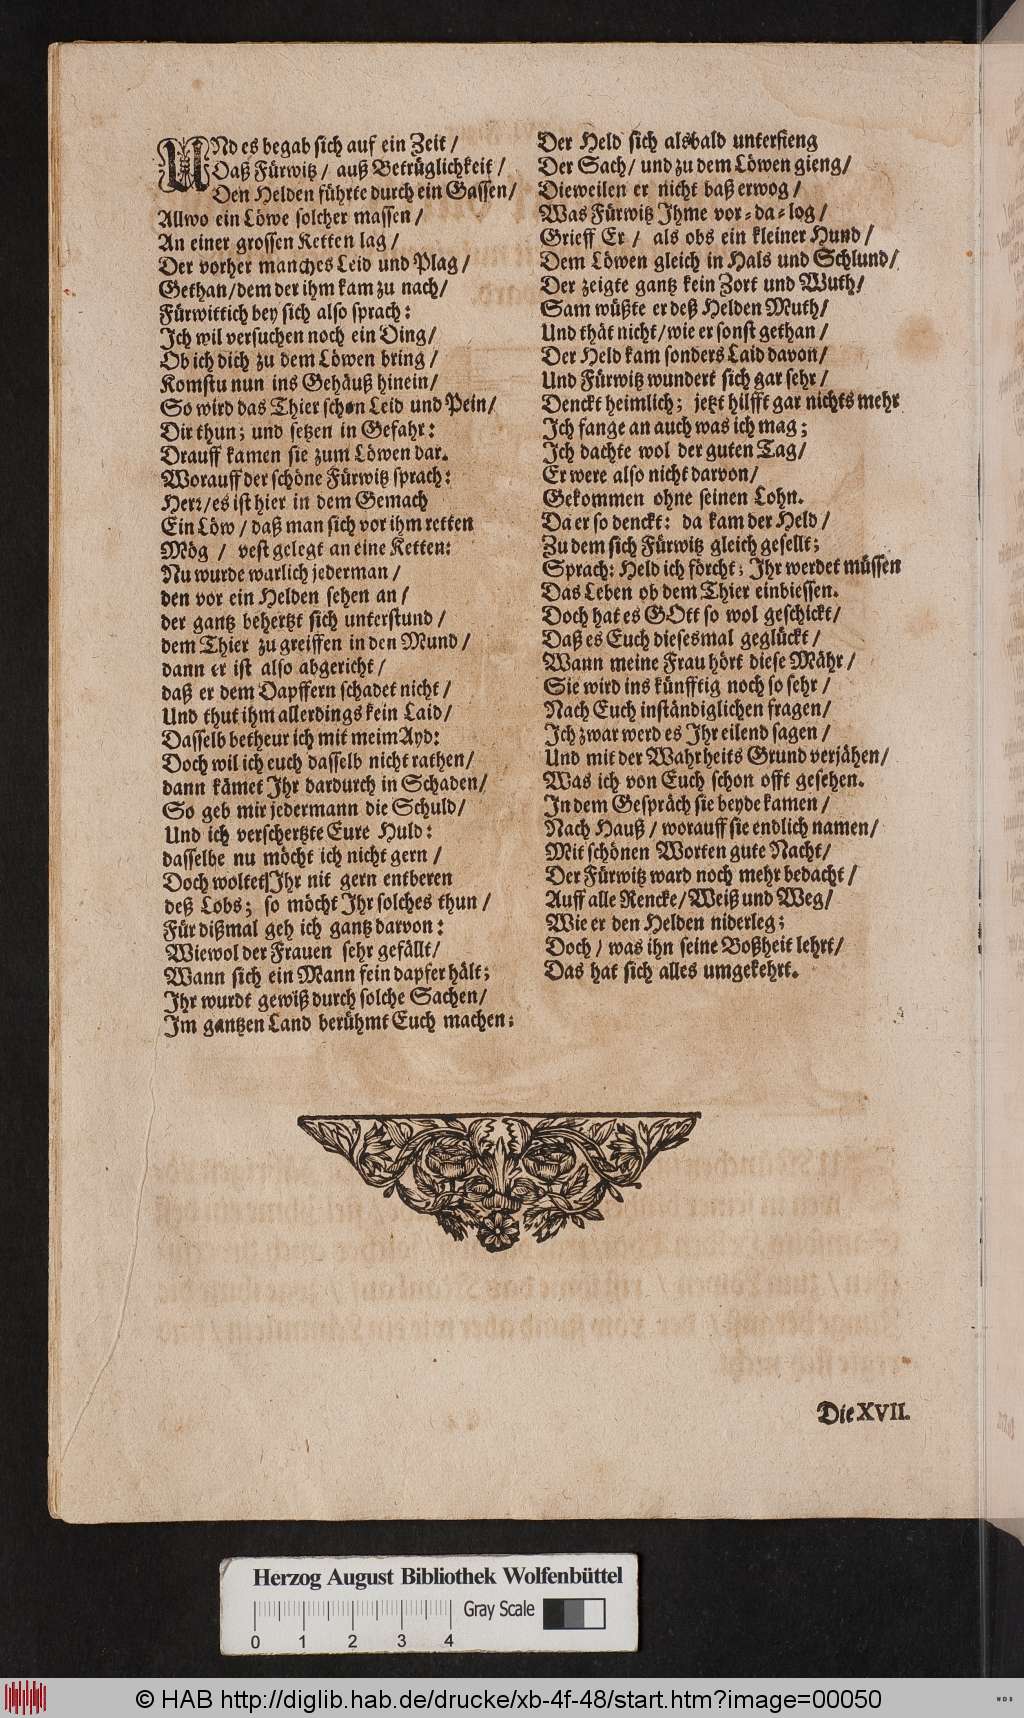 UNd es begab sich auf ein Zeit /
Daß Fürwitz / auß Betrüglichkeit /
Den Helden führte durch ein Gassen /
Allwo ein Löwe solcher massen /
An einer grossen Ketten lag /
Der vorher manches Leid und Plag /
Gethan / dem der ihm kam zu nach /
Fürwittich bey sich also sprach:
Ich wil versuchen noch ein Ding /
Ob ich dich zu dem Löwen bring /
Komstu nun ins Gehäuß hinein /
So wird das Thier schon Leid und Pein /
Dir thun; und setzen in Gefahr:
Drauff kamen sie zum Löwen dar.
Worauff der schöne Fürwitz sprach:
Herr / es ist hier in dem Gemach
Ein Löw / daß man sich vor ihm retten
Mög / vest gelegt an eine Ketten:
Nu wurde warlich jederman /
den vor ein Helden sehen an /
der gantz behertzt sich unterstund /
dem Thier zu greiffen in den Mund /
dann er ist also abgericht /
daß er dem Dapffern schadet nicht /
Und thut ihm allerdings kein Laid /
Dasselb betheur ich mit meim Ayd:
Doch wil ich euch dasselb nicht rathen /
dann kämet Ihr dardurch in Schaden /
So geb mir jedermann die Schuld /
Und ich verschertzte Eure Huld:
dasselbe nu möcht ich nicht gern /
Doch woltet Ihr nit gern entberen
deß Lobs; so möcht Ihr solches thun /
Für dißmal geh ich gantz darvon:
Wiewol der Frauen sehr gefällt /
Wann sich ein Mann fein dapfer hält;
Ihr wurdt gewiß durch solche Sachen /
Im gantzen Land berühmt Euch machen;
Der Held sich alsbald unterfieng
Der Sach / und zu dem Löwen gieng /
Dieweilen er nicht baß erwog /
Was Fürwitz Ihme vor-da-log /
Grieff Er / als obs ein kleiner Hund /
Dem Löwen gleich in Hals und Schlund /
Der zeigte gantz kein Zort und Wuth /
Sam wüßte er deß Helden Muth /
Und thät nicht / wie er sonst gethan /
Der Held kam sonders Laid davon /
Und Fürwitz wundert sich gar sehr /
Denckt heimlich; jetzt hilfft gar nichts mehr
Ich fange an auch was ich mag;
Ich dachte wol der guten Tag /
Er were also nicht darvon /
Gekommen ohne seinen Lohn.
Da er so denckt: da kam der Held /
Zu dem sich Fürwitz gleich gesellt;
Sprach: Held ich förcht; Ihr werdet müssen
Das Leben ob dem Thier einbiessen.
Doch hat es GOtt so wol geschickt /
Daß es Euch diesesmal geglückt /
Wann meine Frau hört diese Mähr /
Sie wird ins künfftig noch so sehr /
Nach Euch inständiglichen fragen /
Ich zwar werd es Ihr eilend sagen /
Und mit der Wahrheits Grund verjähen /
Was ich von Euch schon offt gesehen.
In dem Gespräch sie beyde kamen /
Nach Hauß / worauff sie endlich namen /
Mit schönen Worten gute Nacht /
Der Fürwitz ward noch mehr bedacht /
Auff alle Rencke / Weiß und Weg /
Wie er den Helden niderleg;
Doch / was ihn seine Boßheit lehrt /
Das hat sich alles umgekehrt.
Die XVII.
Herzog August Bibliothek Wolfenbüttel
Gray Scale
0 1 2 3 4
© HAB http://diglib.hab.de/drucke/xb-4f-48/start.htm?image=00050